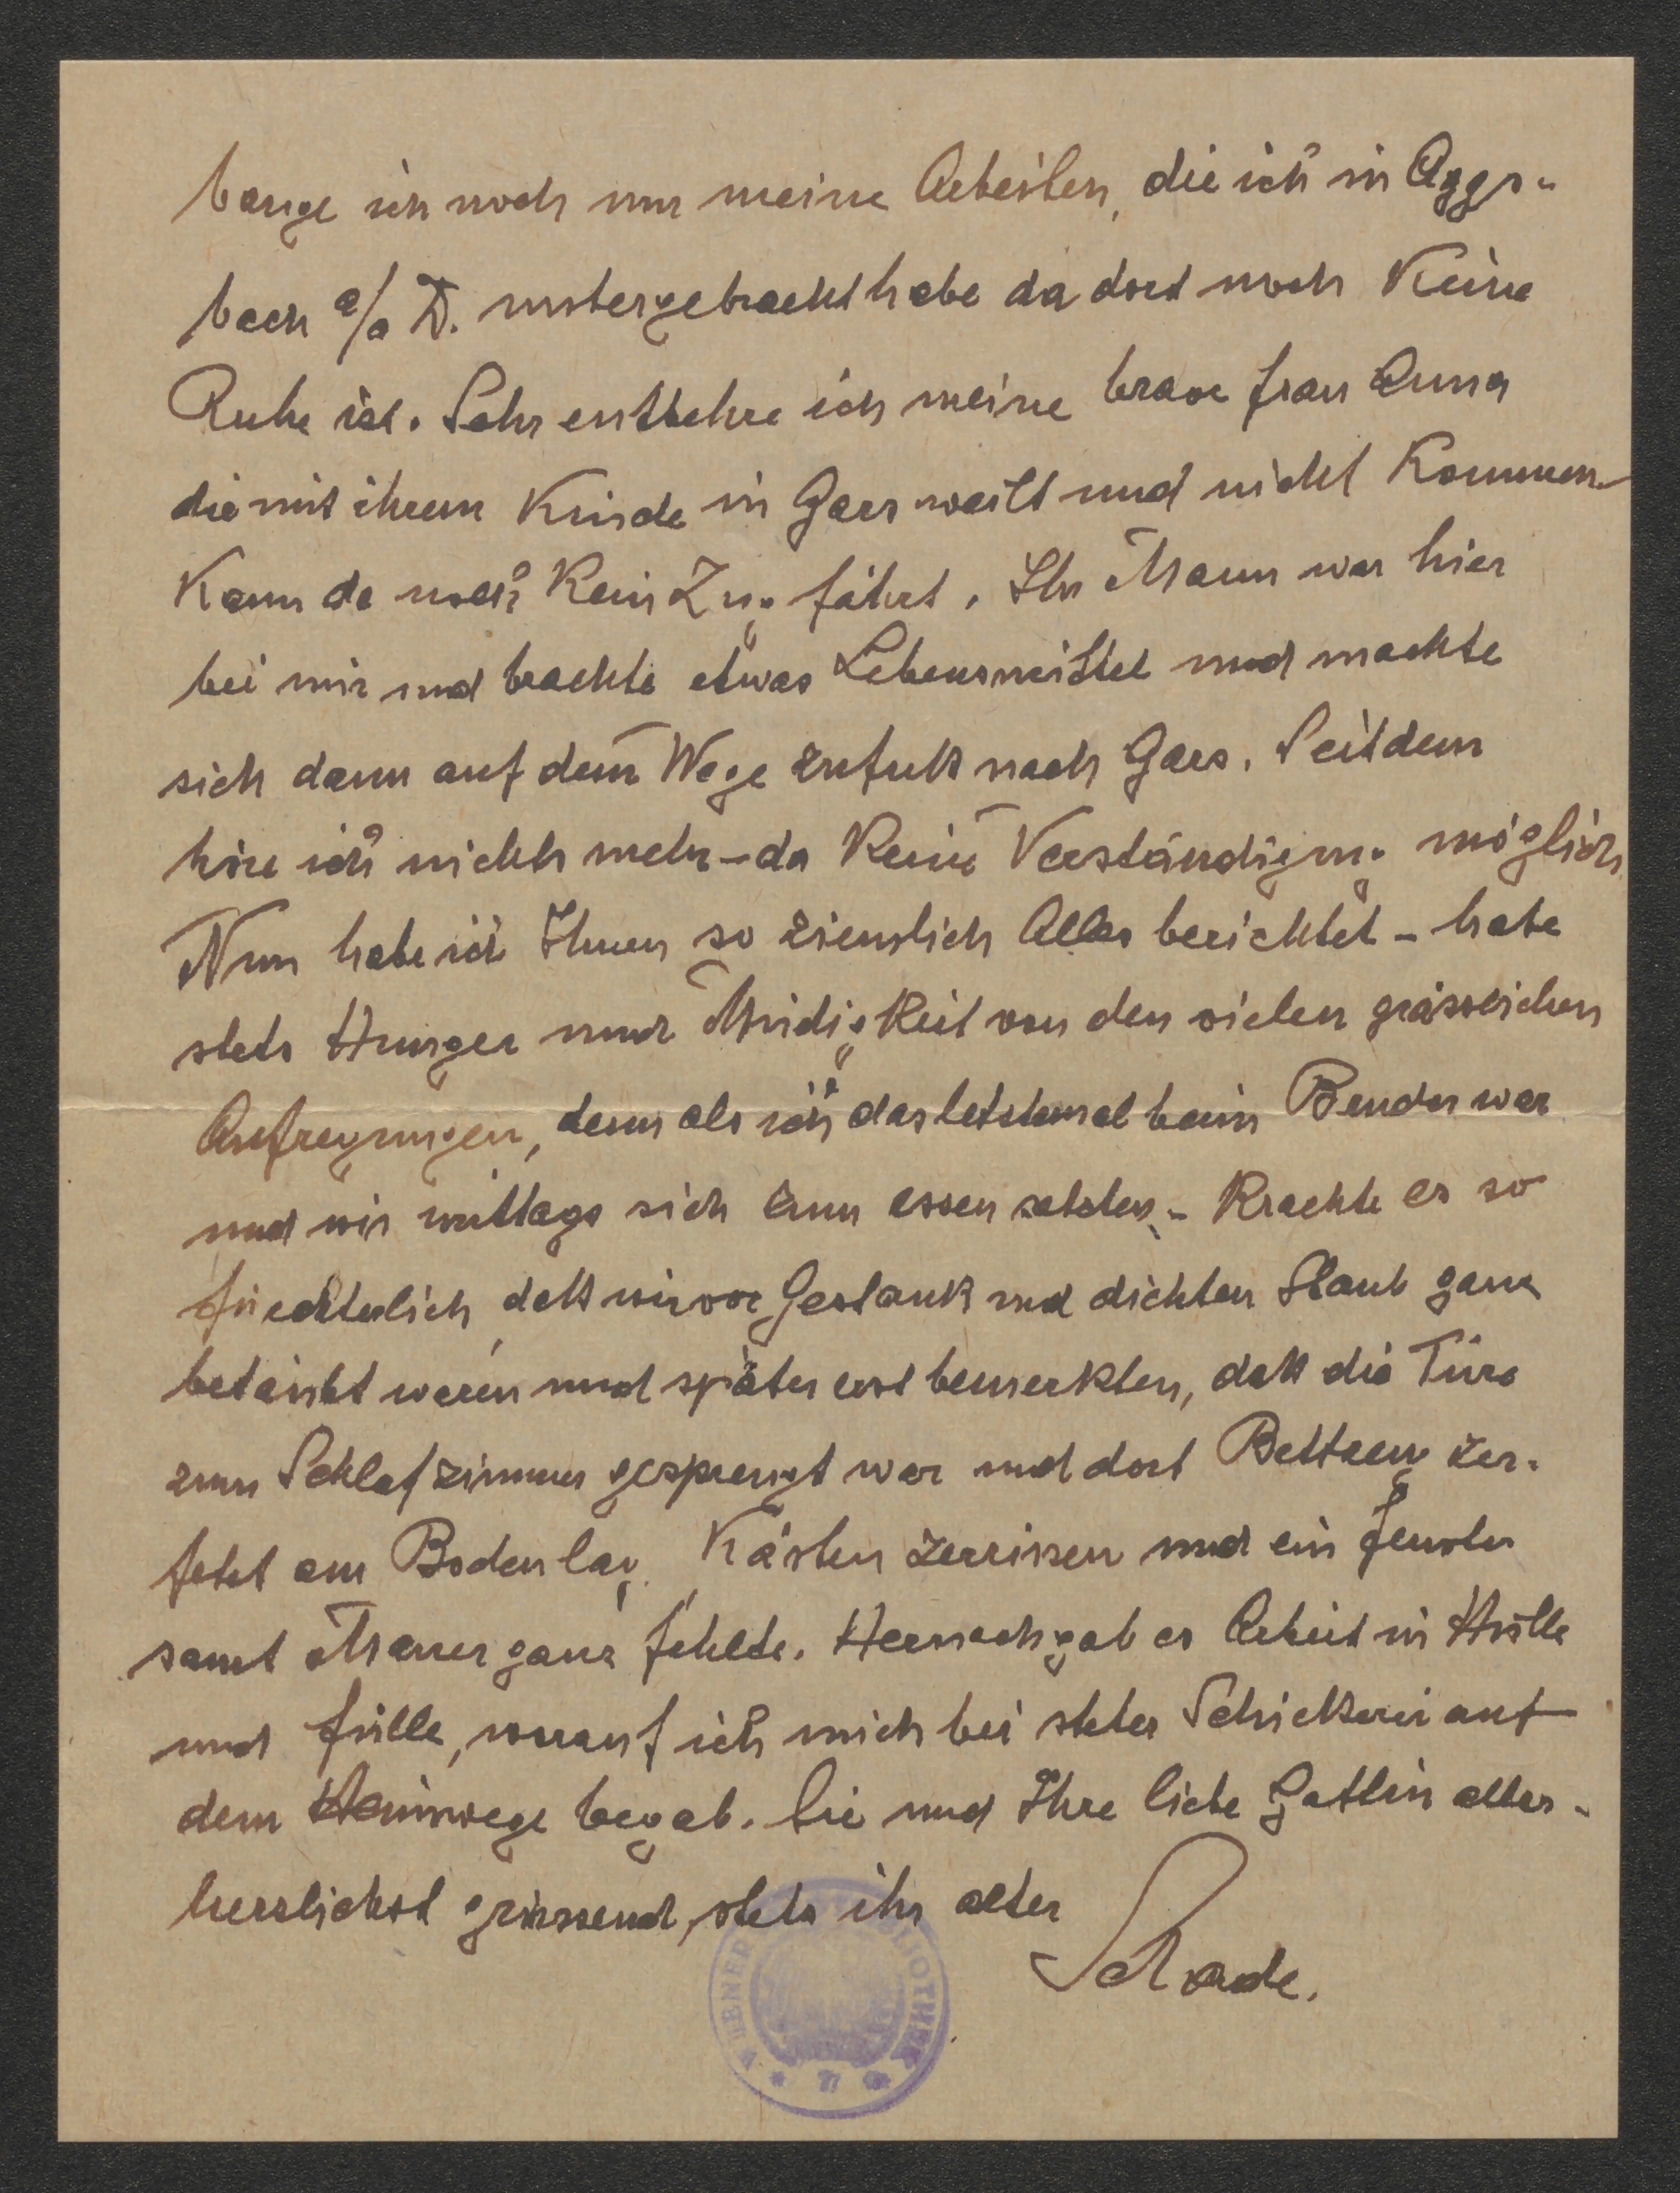 bange ich noch um meine Arbeiten, die ich in Aggs-
bach a/a D. untergebracht habe da dort noch keine
Ruhe ist. Sehr entbehre ich meine brave Frau Anna
die mit ihrem Kinde in Gars weilt und nicht kommen
kann da noch kein Zug fährt. Ihr Mann war hier
bei mir und brachte etwas Lebensmittel und machte
sich dann auf dem Wege zufuß nach Gars. Seitdem
höre ich nichts mehr – da keine Verständigung möglich.
Nun habe ich Ihnen so ziemlich Alles berichtet – habe
stets Hunger und Müdigkeit von den vielen grässlichen
Aufregungen, denn als ich das letztemal beim Bruder war
und wir mittags sich zum essen setzten, – krachte es so
fürchterlich, daß wir vor Gestank und dichten Staub ganz
betäubt waren und später erst bemerkten, daß die Türe
zum Schlafzimmer gesprengt war und dort Bettzeug zer-
fetzt am Boden lag, Kästen zerrissen und ein Fenster
samt Mauer ganz fehlte. Hernach gab es Arbeit in Hülle
und Fülle, worauf ich mich bei steter Schießerei auf
dem Heimwege begab. Sie und Ihre liebe Gattin aller-
herzlichst grüssend, stets ihr alter
Schade.
WIENER BIBLIOTHEK